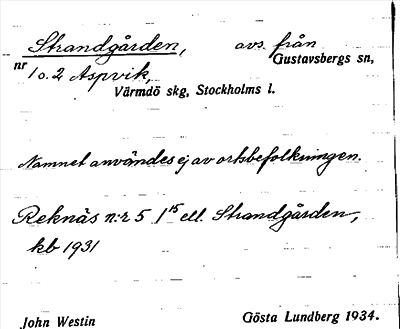 Strandgården, avs. från
nr 1 o. 2 Aspvik, Gustavsbergs sn,
Värmdö skg, Stockholms l.
Namnet användes ej av ortsbefolkningen.
Reknäs n:r 5 1¹⁵ ell. Strandgården,
kb 1931
John Westin Gösta Lundberg 1934.